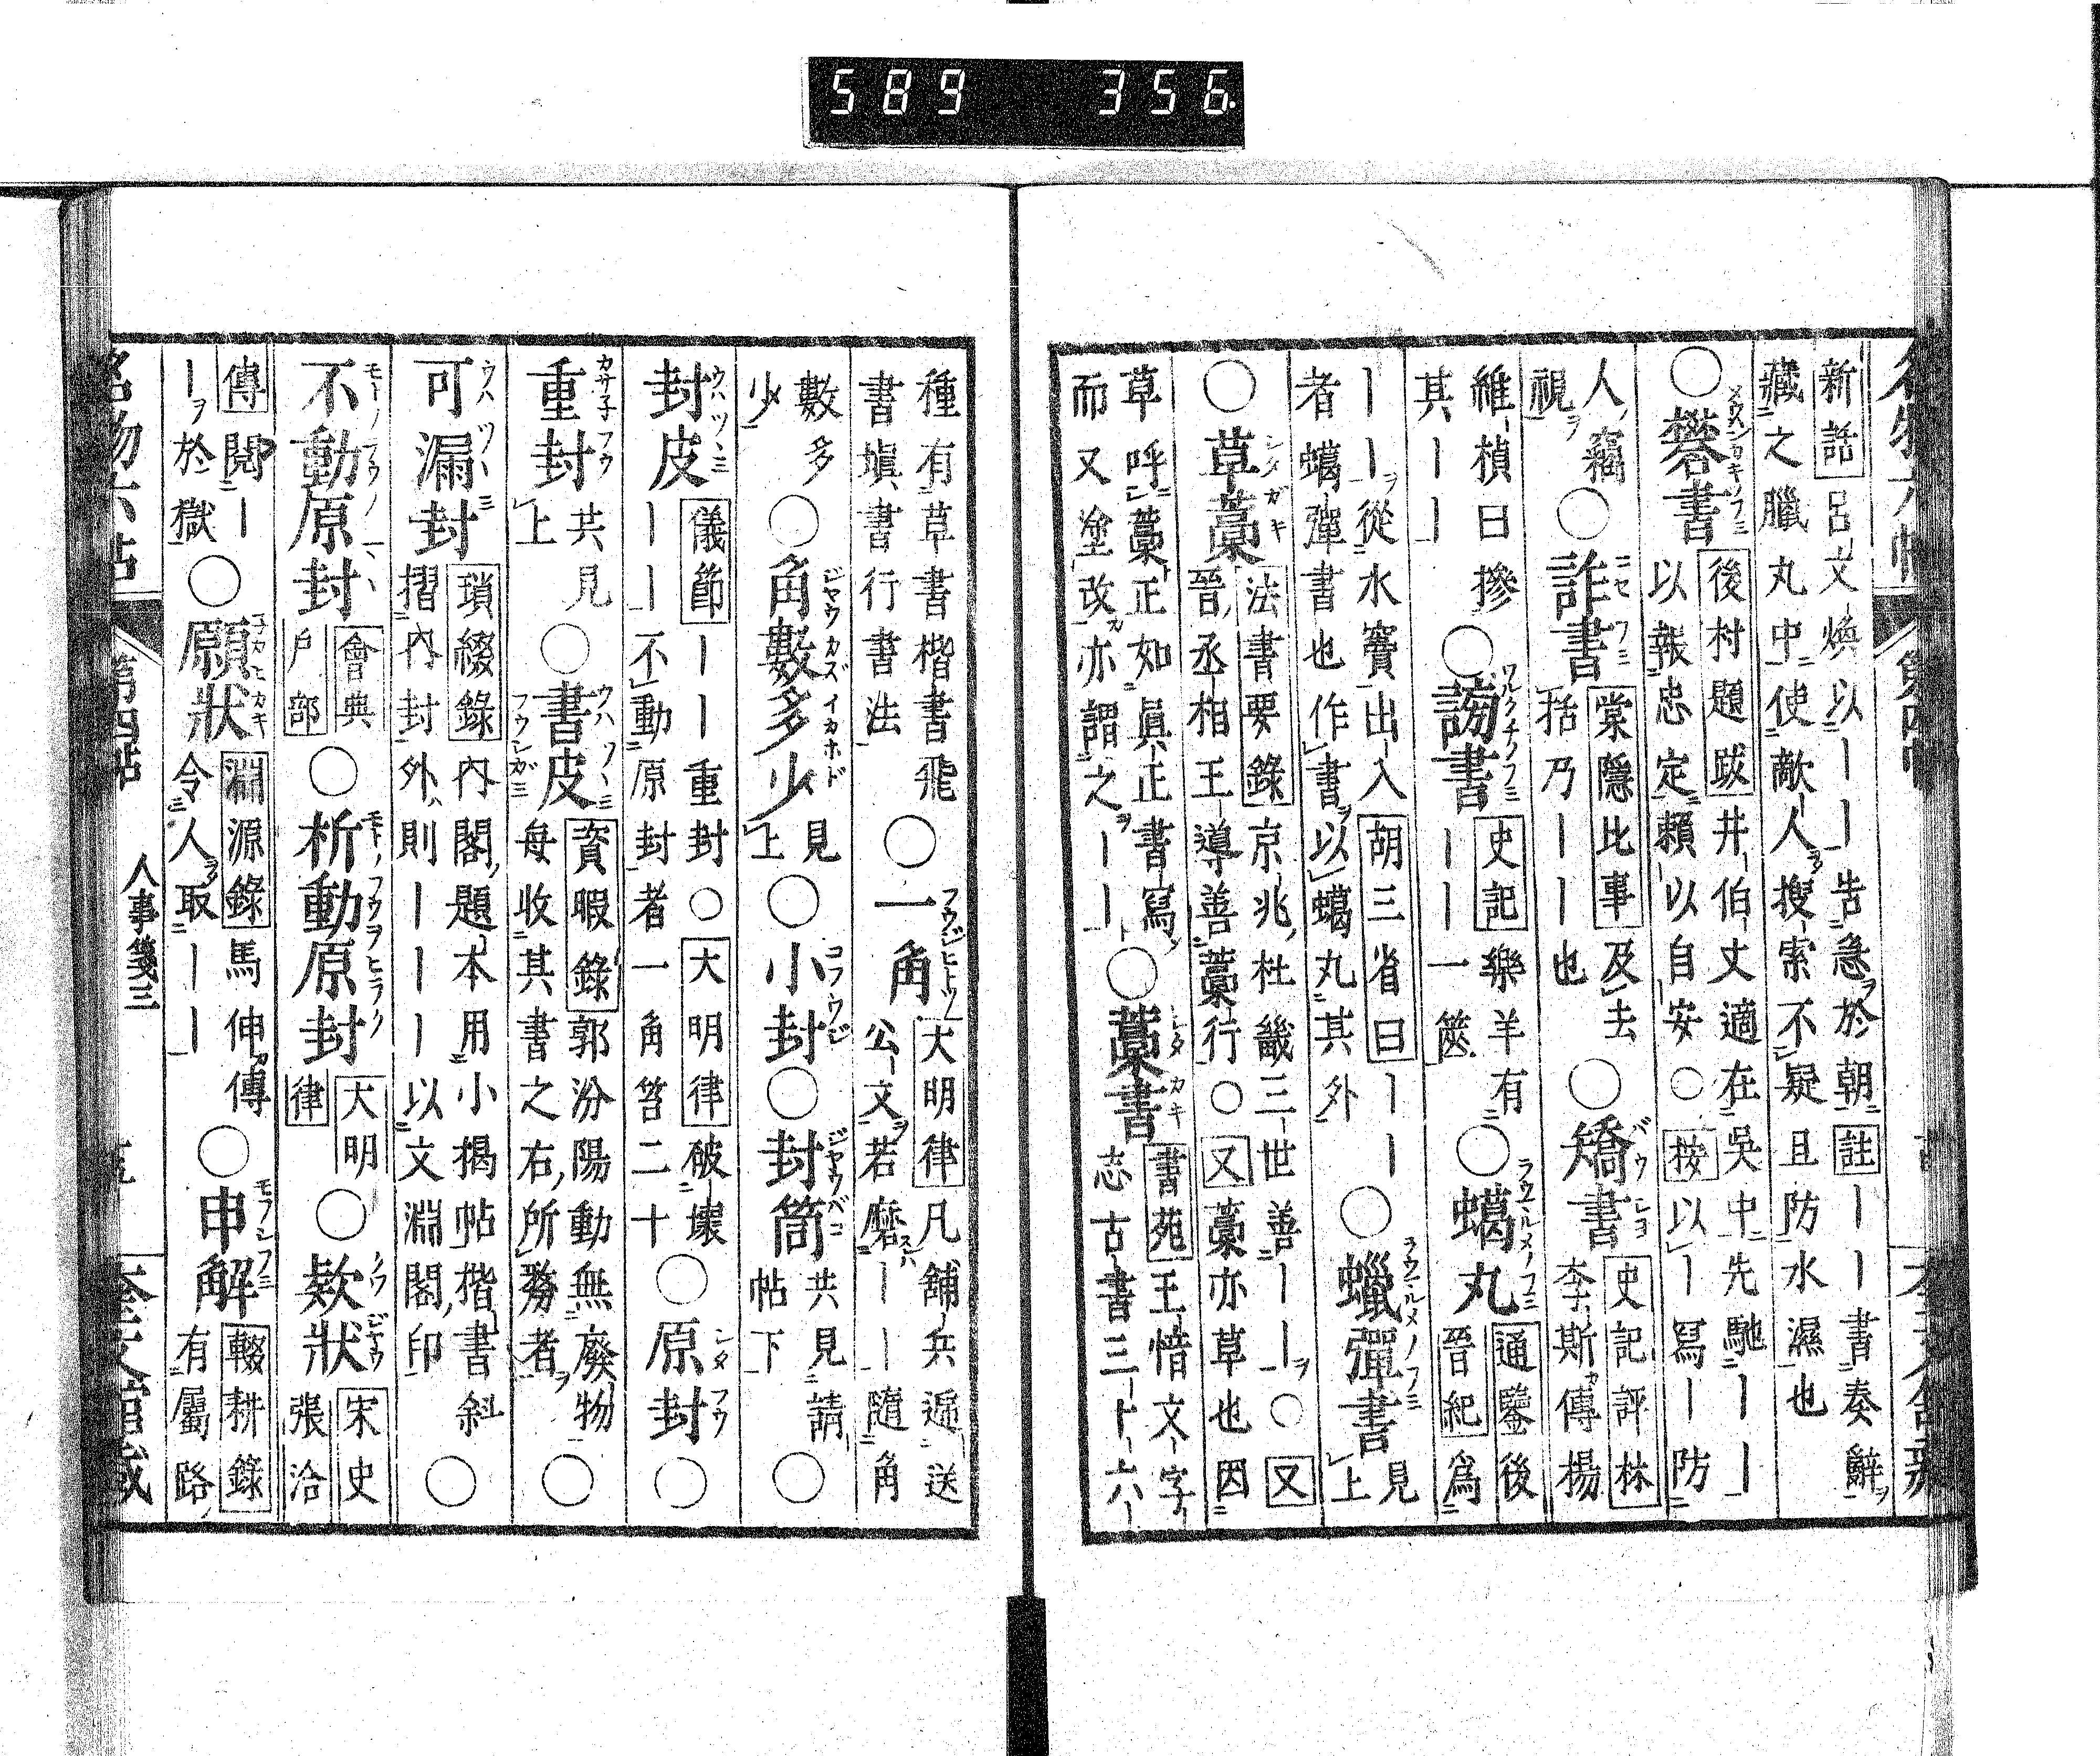 589 356
新話呂文煥以｜｜告急於朝註｜｜書奏辭
藏之臘丸中使敵人搜索不疑且防水濕也
○礬書後村題跋井伯丈適在吳中先馳｜｜
以報忠定賴以自安○按以｜寫｜防
人竊視○詐書棠隱比事及去○矯書史記評林
括乃｜｜也李斯傳楊
維楨曰摻其｜｜○謗書史記樂羊有
｜｜一篋○蠟丸通鑒後
晉紀爲
｜｜從水竇出入胡三省曰｜｜○蠟彈書見上
者蠟彈書也作書以蠟丸其外
○草藁法書要錄京兆杜畿三世善｜｜○又
晉丞相王導善藁行○又藁亦草也因
草呼藁正如眞正書寫○藁書書苑王愔文字
而又塗改亦謂之｜｜志古書三十六
種有草書楷書飛○一角大明律凡舖兵遞送
書塡書行書法公文若磨｜｜隨角
數多少○角數多少見上○小封○封筒共見請帖下○
封皮儀節｜｜重封○大明律破壞○原封○
｜｜不動原封者一角笞二十
重封共見上○書皮資暇錄郭汾陽動無廢物○
每收其書之右所務者
可漏封瑣綴錄內閣題本用小揭帖楷書斜○
摺內封外則｜｜｜以文淵閣印
不動原封會典戶部○析動原封大明律○欵狀宋史張洽
傳閱｜｜於獄○願狀淵源錄馬伸傳○申解輟耕錄
令人取｜｜有屬路
名物六帖 第四帖 人事箋三